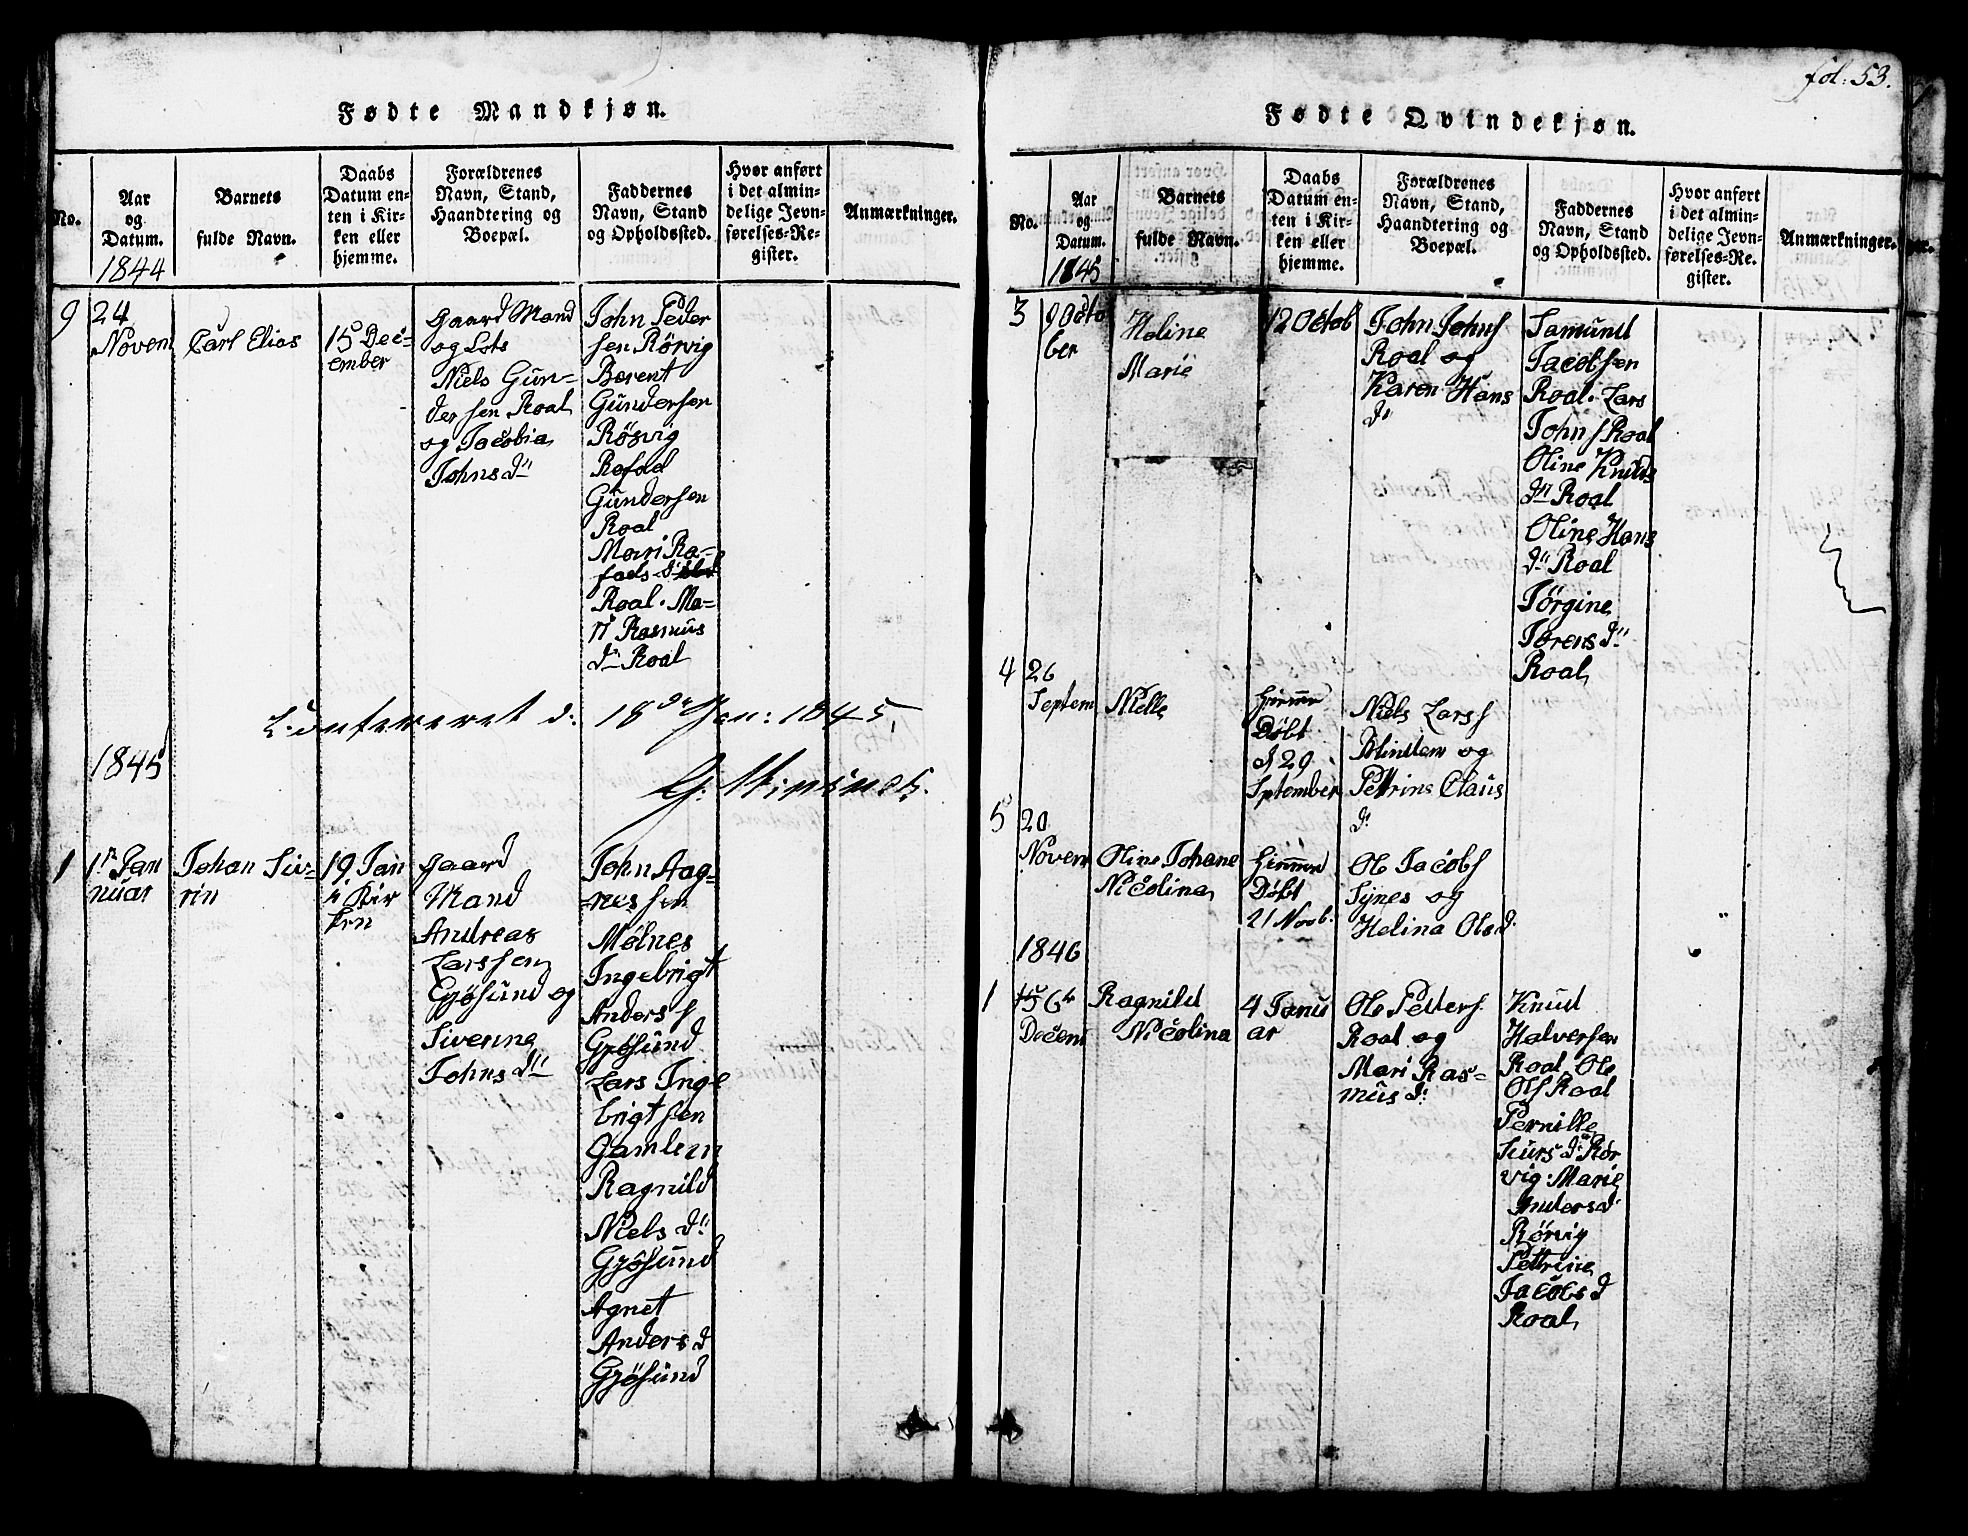 fol: 53.
Fødte Mandkjøn.
No.
Aar
og
Datum.
1844
Barnets
fulde Navn.
Daabs
Datum en-
ten i Kir-
ken eller
hjemme.
Forældrenes
Navn, Stand,
Haandtering og
Boepæl.
Faddernes
Navn, Stand
og Opholdssted.
Hvor anført
i det almin-
delige Jevn-
førelses-Re-
gister.
Anmærkninger.
9
24
Novem
Carl Elias
15 Dec-
ember
Gaard Mand
og Lots
Niels Gun-
dersen Roal
og Jacobia
Johnsd
John Peder
sen Rörvig
Berent
Gundersen
Rösvig
Rafad
Gundersen
Roal
Mari Ra-
fads
Roal. Ma-
Rasmus
d Roal
Confereret d: 18de Jan: 1845.
1845
1
1 Jan
nuar
Johan Siv-
rin
19 Jan
i Kir
ken
Gaard
Mand
Andreas
Larssen
Gjösund og
Siverine
Johns d
John Aag-
nessen
Mölnes
Ingebrigt
Anders s
Gjösund
Lars Inge
brigtsen
Gamlem
Ragnild
Niels d
Gjösund
Agnet
Anders d
Gjösund
Fødte Qvindekjøn.
No.
Aar
og
Datum.
1845
Barnets
fulde Navn.
Daabs
Datum en-
ten i Kir-
ken eller
hjemme.
Forældrenes
Navn, Stand,
Haandtering og
Boepæl.
Faddernes
Navn, Stand
og Opholdssted.
Hvor anført
i det almin-
delige Jevn-
førelses-Re-
gister.
Anmærkninger.
3
9 Octo
ber
Heline
Marie
12 Octob
John Johns
Roal og
Karen Hans
d
Samund
Jacobsen
Roal. Lars
Johns Roal
Oline Knuds
d Roal
Oline Hans
d Roal
Jörgine
Jörens d
Roal
4
26
Septem
Nielle
Hiemme
Döbt
d 29
September
Niels Lars s
Blindem og
Pettrine Claus
d
5
20
Novem
Oline Johane
Nicolina
Hiemme
Döbt
21 Novb.
Ole Jacobs
Synes og
Helina Olsd
1846
1
6
Decem
Ragnild
Nicolina
4 Janu
ar
Ole Petters
Roal og
Mari Ras-
mus d:
Knud
Halversen
Roal, Ole
Ols Roal
Pernille
Siurs d Rör
vig. Marie
Andersd
Rörvig
Pettrine
Jacobs d
Roal